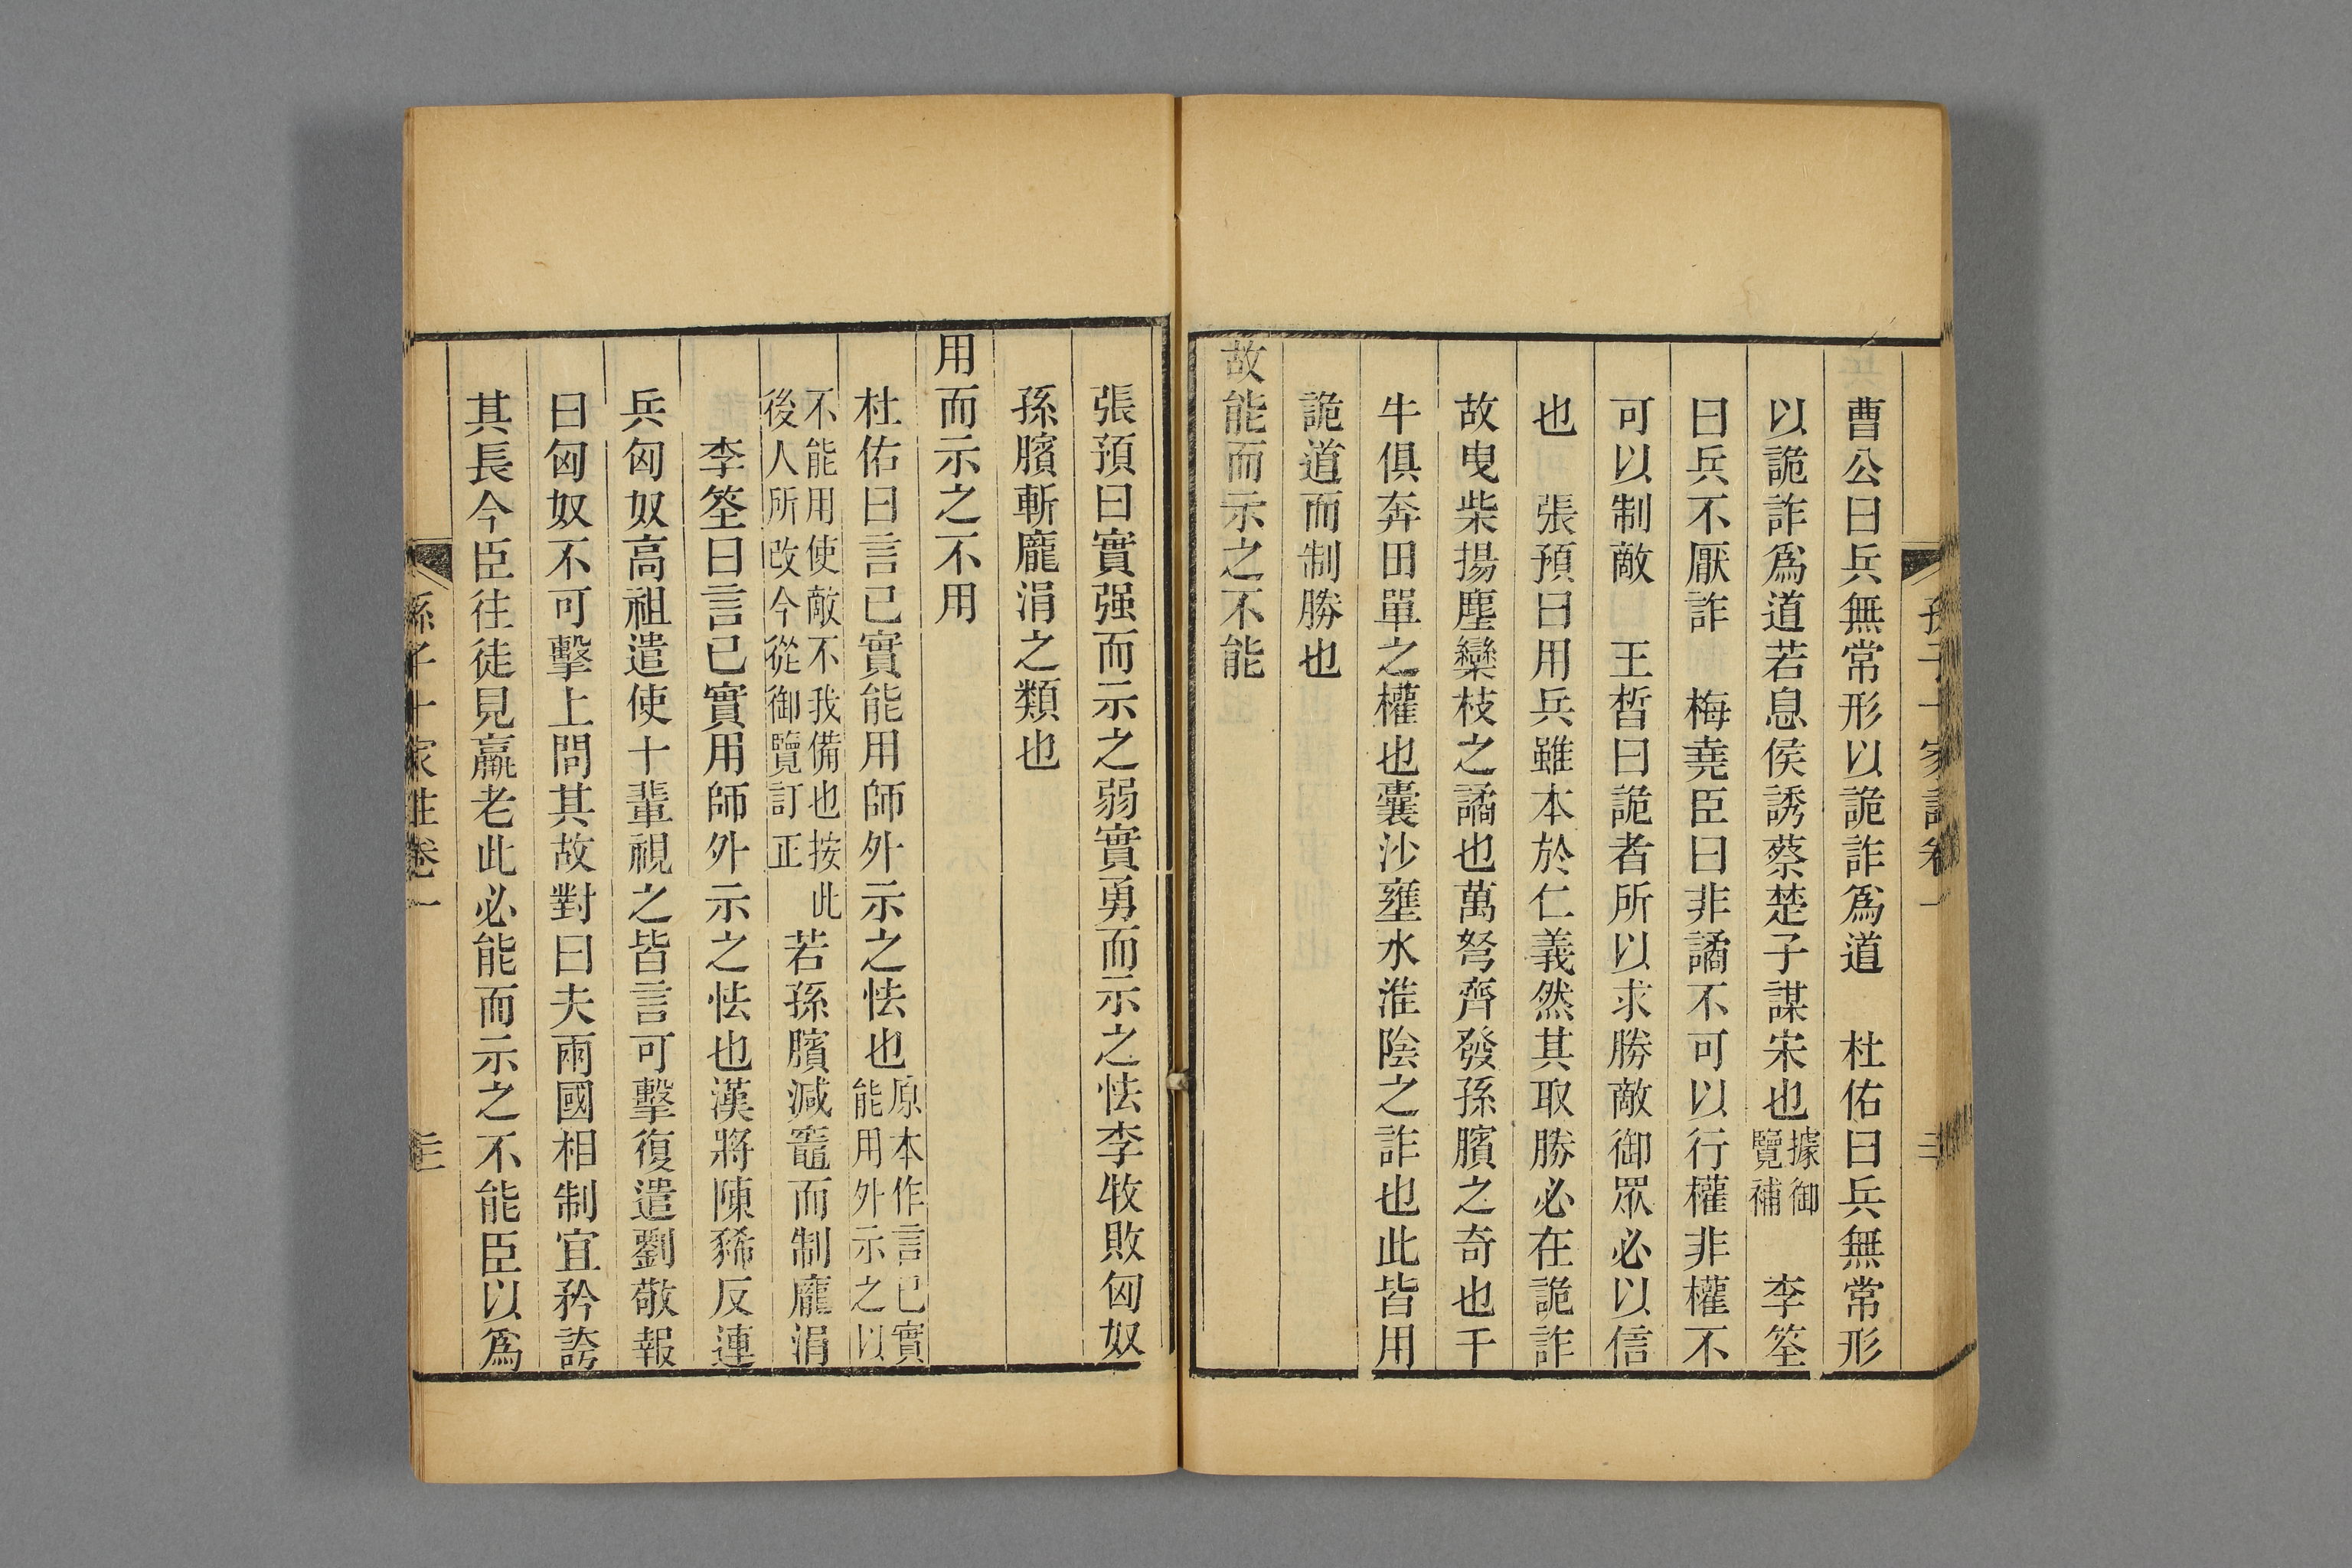 曹公曰兵無常形以詭詐爲道　杜佑曰兵無常形
以詭詐爲道若息侯誘蔡楚子謀宋也據御覽補　李筌
曰兵不厭詐　梅堯臣曰非譎不可以行權非權不
可以制敵　王晳曰詭者所以求勝敵御眾必以信
也　張預曰用兵雖本於仁義然其取勝必在詭詐
故曳柴揚塵欒枝之譎也萬弩齊發孫臏之奇也千
牛俱奔田單之權也囊沙壅水淮陰之詐也此皆用
詭道而制勝也
故能而示之不能
張預曰實强而示之弱實勇而示之怯李牧敗匈奴
孫臏斬龐涓之類也
用而示之不用
杜佑曰言已實能用師外示之怯也原本作言已實能用外示之以
不能用使敵不我備也按此後人所改今從御覽訂正　若孫臏減竈而制龐涓
李筌曰言已實用師外示之怯也漢將陳豨反連
兵匈奴高祖遣使十輩視之皆言可擊復遣劉敬報
曰匈奴不可擊上問其故對曰夫兩國相制宜矜誇
其長今臣往徒見羸老此必能而示之不能臣以爲
孫子十家注卷一